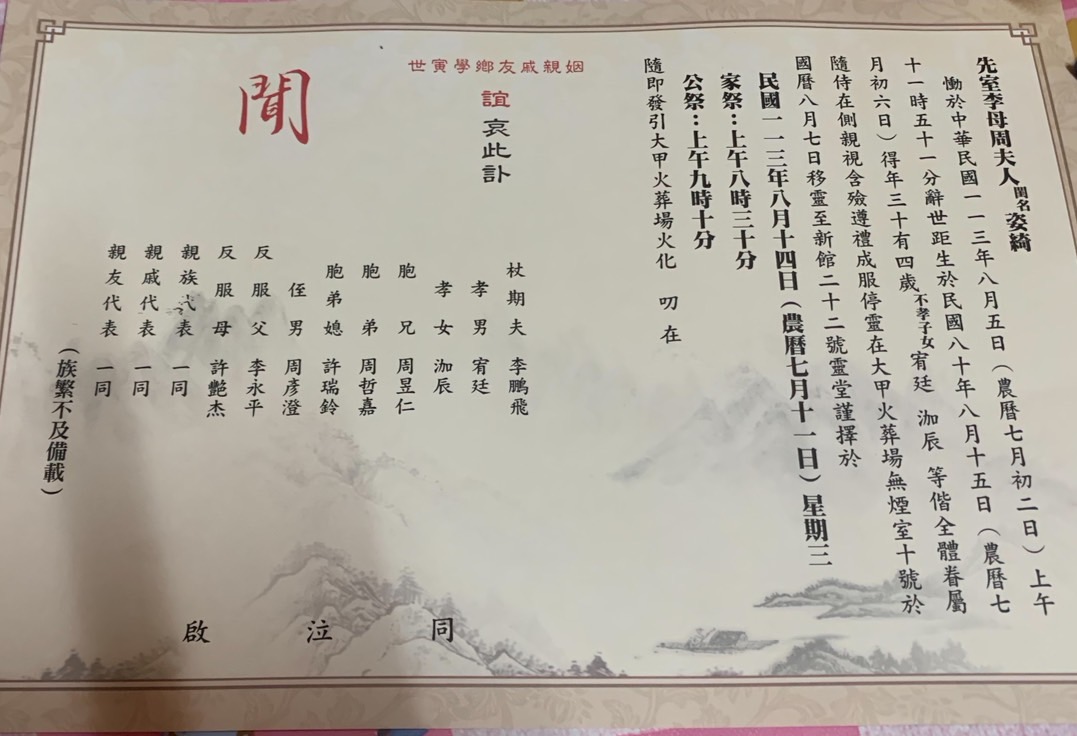 先室李母周夫人閨名姿綺
慟於中華民國一一三年八月五日（農曆七月初二日）上午
十一時五十一分辭世距生於民國八十年八月十五日（農曆七
月初六日）得年三十有四歲不孝子女宥廷 泇辰 等偕全體眷屬
隨侍在側親視含殮遵禮成服停靈在大甲火葬場無煙室十號於
國曆八月七日移靈至新館二十二號靈堂謹擇於
民國一一三年八月十四日（農曆七月十一日）星期三
家祭：上午八時三十分
公祭：上午九時十分
隨即發引大甲火葬場火化 叨在
姻親戚友鄉學寅世
誼哀此訃
聞
杖期夫 李鵬飛
孝男 宥廷
孝女 泇辰
胞兄 周昱仁
胞弟 周哲嘉
胞弟媳 許瑞鈴
侄男 周彥澄
反服父 李永平
反服母 許艷杰
親族代表 一同
親戚代表 一同
親友代表 一同
（族繁不及備載）
同泣啟